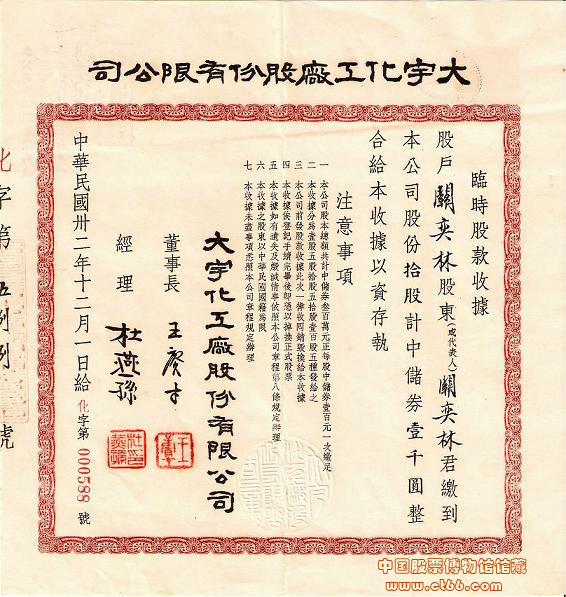 大宇化工廠股份有限公司
臨時股款收據
股戶關奕林股東(或代表人)關奕林君繳到
本公司股份拾股計中儲券壹千圓整
合給本收據以資存執
注意事項
一 本公司股本總額共計中儲券叁百萬元正每股中儲券壹百元一次繳足
二 本收據分為壹股五股拾股五拾股壹百股五種發給之
三 本公司前發股款收據此次一律收回銷毀換給本收據
四 本收據俟登記手續完畢後卽憑以掉換正式股票
五 本收據如有遺失及毀滅情事依照本公司章程第八條規定辦理
六 本收據之股東以中華民國國籍為限
七 本收據未盡事項悉照本公司章程規定辦理
大宇化工廠股份有限公司
董事長
經理 杜燕孫
中華民國卅二年十二月一日給
化字第000588號
化字第 號
中国股票博物馆馆藏
www.ct66.com